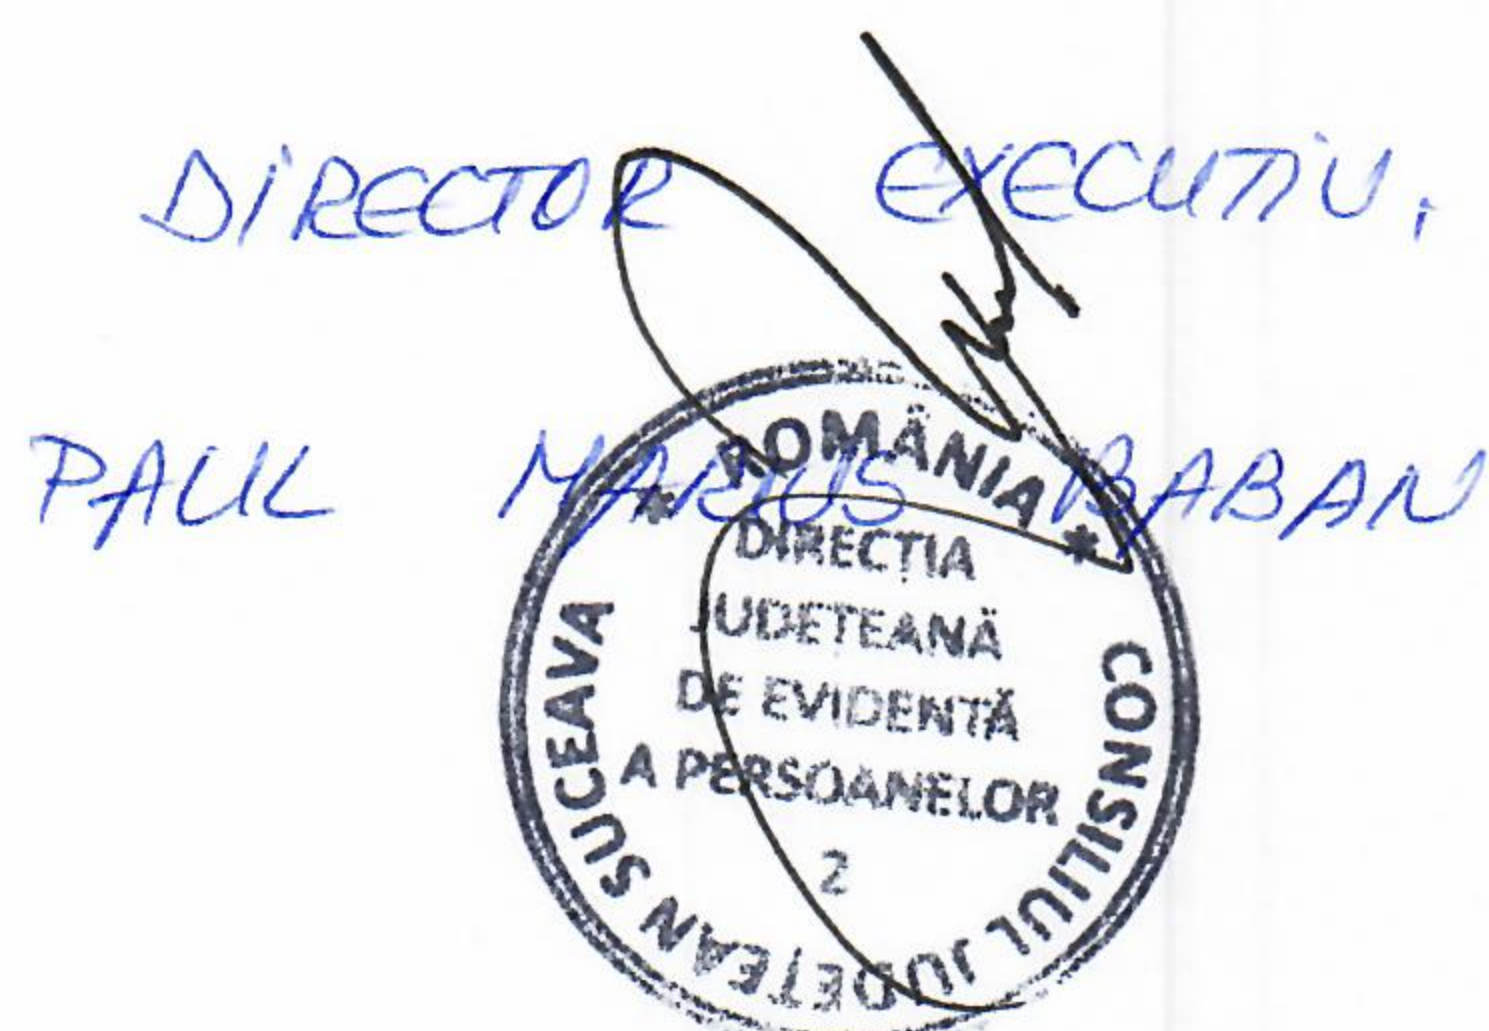 DIRECTOR EXECUTIV,
PAUL MARIUS BABAN
* ROMÂNIA *
CONSILIUL JUDEȚEAN SUCEAVA
DIRECȚIA
JUDEȚEANĂ
DE EVIDENȚĂ
A PERSOANELOR
2